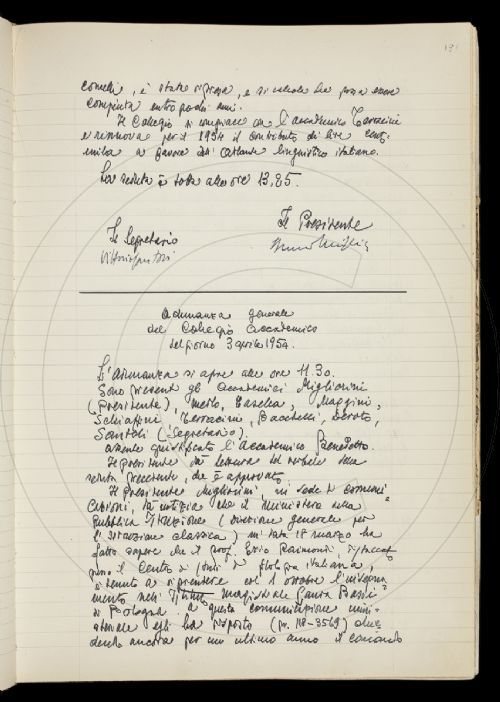 191
, è stata ripresa, e si calcola che possa essere
compiuta entro pochi anni.
Il Collegio si compiace con l'accademico Terracini
e rinnova per il 1954 il contributo di lire
mila a favore dell'Atlante linguistico italiano.
La seduta è tolta alle ore 13,25.
Il Presidente
Il Segretario
Adunanza generale
del Collegio Accademico
del giorno 3 aprile 1954.
L'Adunanza si apre alle ore 11.30.
Sono presenti gli Accademici Migliorini
(Presidente), Merlo, Casella, Maggini,
Schiaffini, Terracini, Bacchelli, Devoto,
Santoli (Segretario).
assente giustificato l'Accademico Benedetto.
Il Presidente dà lettura del verbale della
seduta precedente, che è approvato.
Il Presidente Migliorini, in sede di comuni=
cazioni, dà notizia che il Ministero della
Pubblica Istruzione (Direzione generale per
l'istruzione classica) in data 18 marzo ha
fatto sapere che il prof. Ezio Raimondi, distaccato
presso il Centro di studi di filologia italiana,
è tenuto a riprendere col 1 ottobre l'insegna=
mento nell'Istituto magistrale "Laura Bassi"
di Bologna. a questa comunicazione mini=
steriale egli ha risposto (pr. 118-3569) chie=
dendo ancora per un ultimo anno il comando